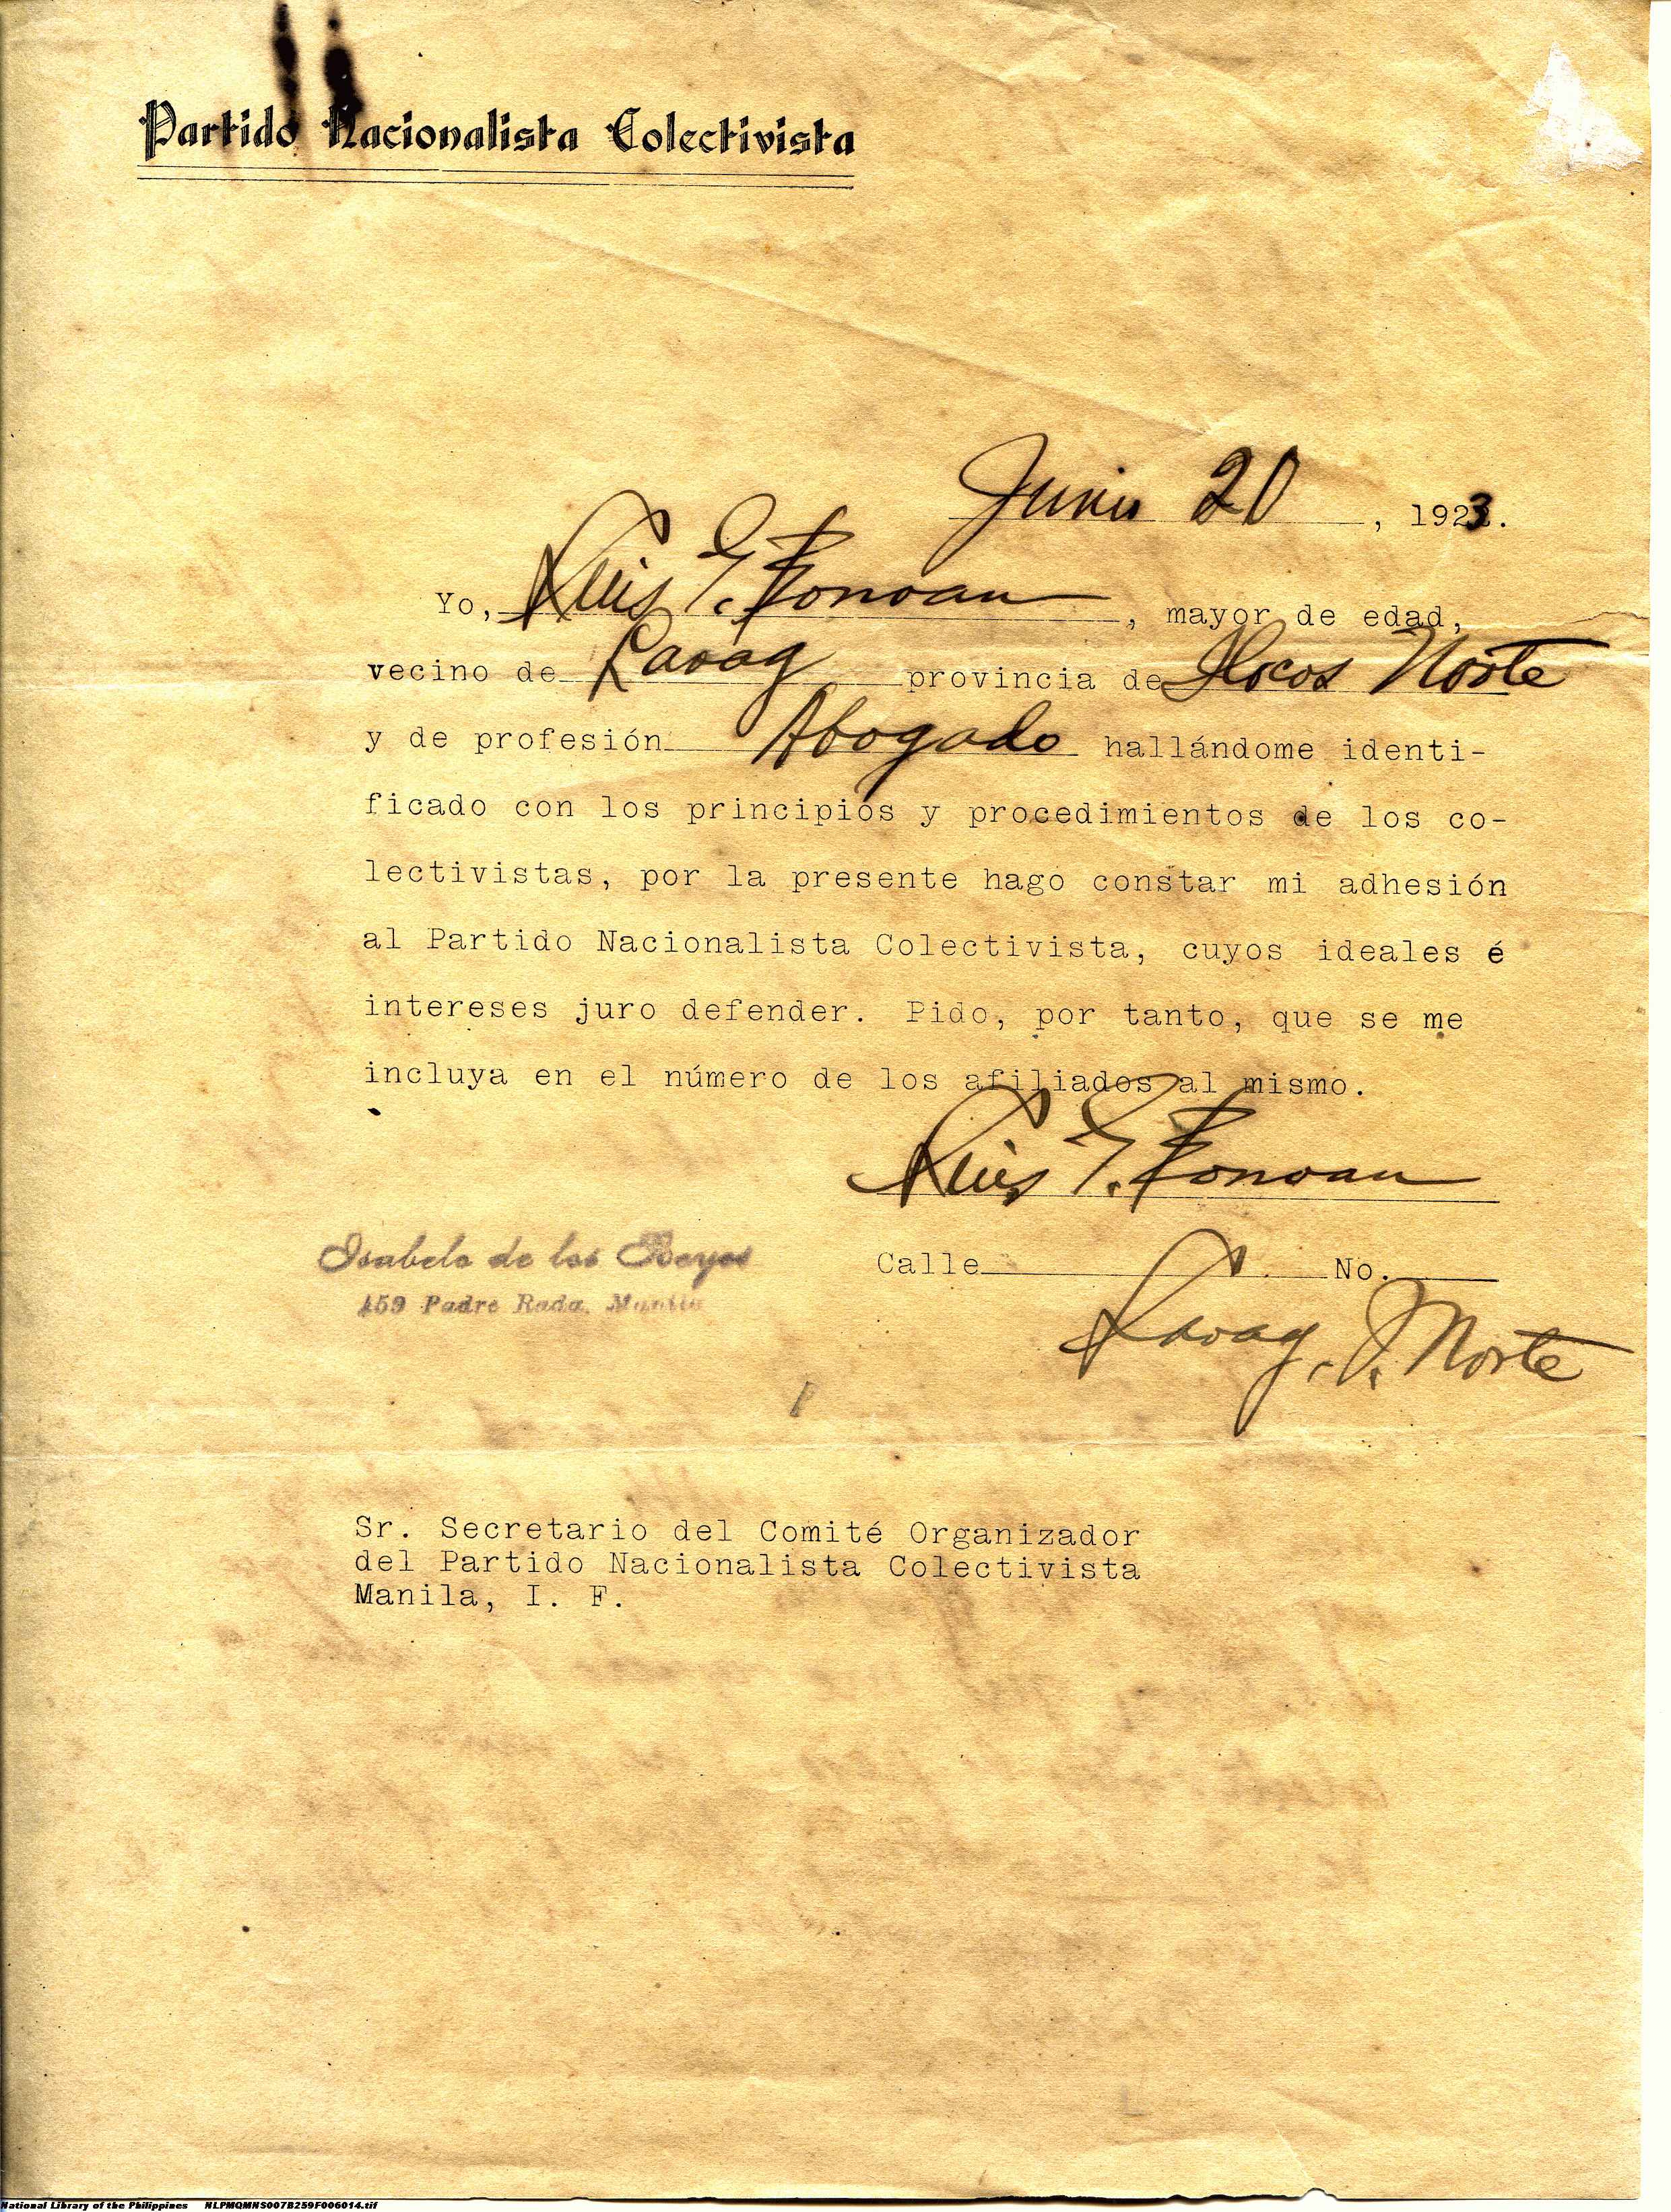 Partido Nacionalista Colectivista
Junio 20, 1923.
Yo, Luis T. , mayor de edad,
vecino de Laoag provincia de Ilocos Norte
y de profesión Abogado hallándome identi-
ficado con los principios y procedimientos de los co-
lectivistas, por la presente hago constar mi adhesión
al Partido Nacionalista Colectivista, cuyos ideales é
intereses juro defender. Pido, por tanto, que se me
incluya en el número de los afiliados al mismo.
Luis T.
Isabelo de los Reyes
159 Padre Rada, Manila
Calle No.
Laoag, I. Norte
Sr. Secretario del Comité Organizador
del Partido Nacionalista Colectivista
Manila, I. F.
National Library of the Philippines NLPMQMNS007B259F006014.tif